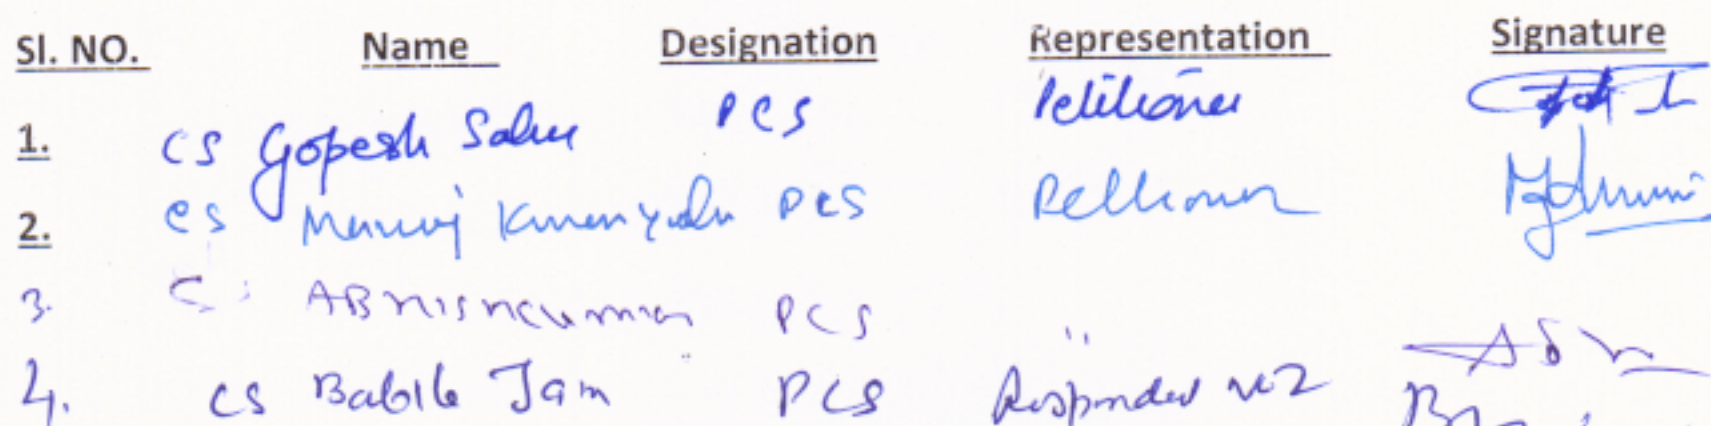 Sl. NO. Name Designation Representation Signature
1. CS Gopesh Sahu PCS Petitioner
2. CS Manoj Kumar Yadav PCS Petitioner
3. PCS "
4. CS Babita Jain PCS Respondent no 2